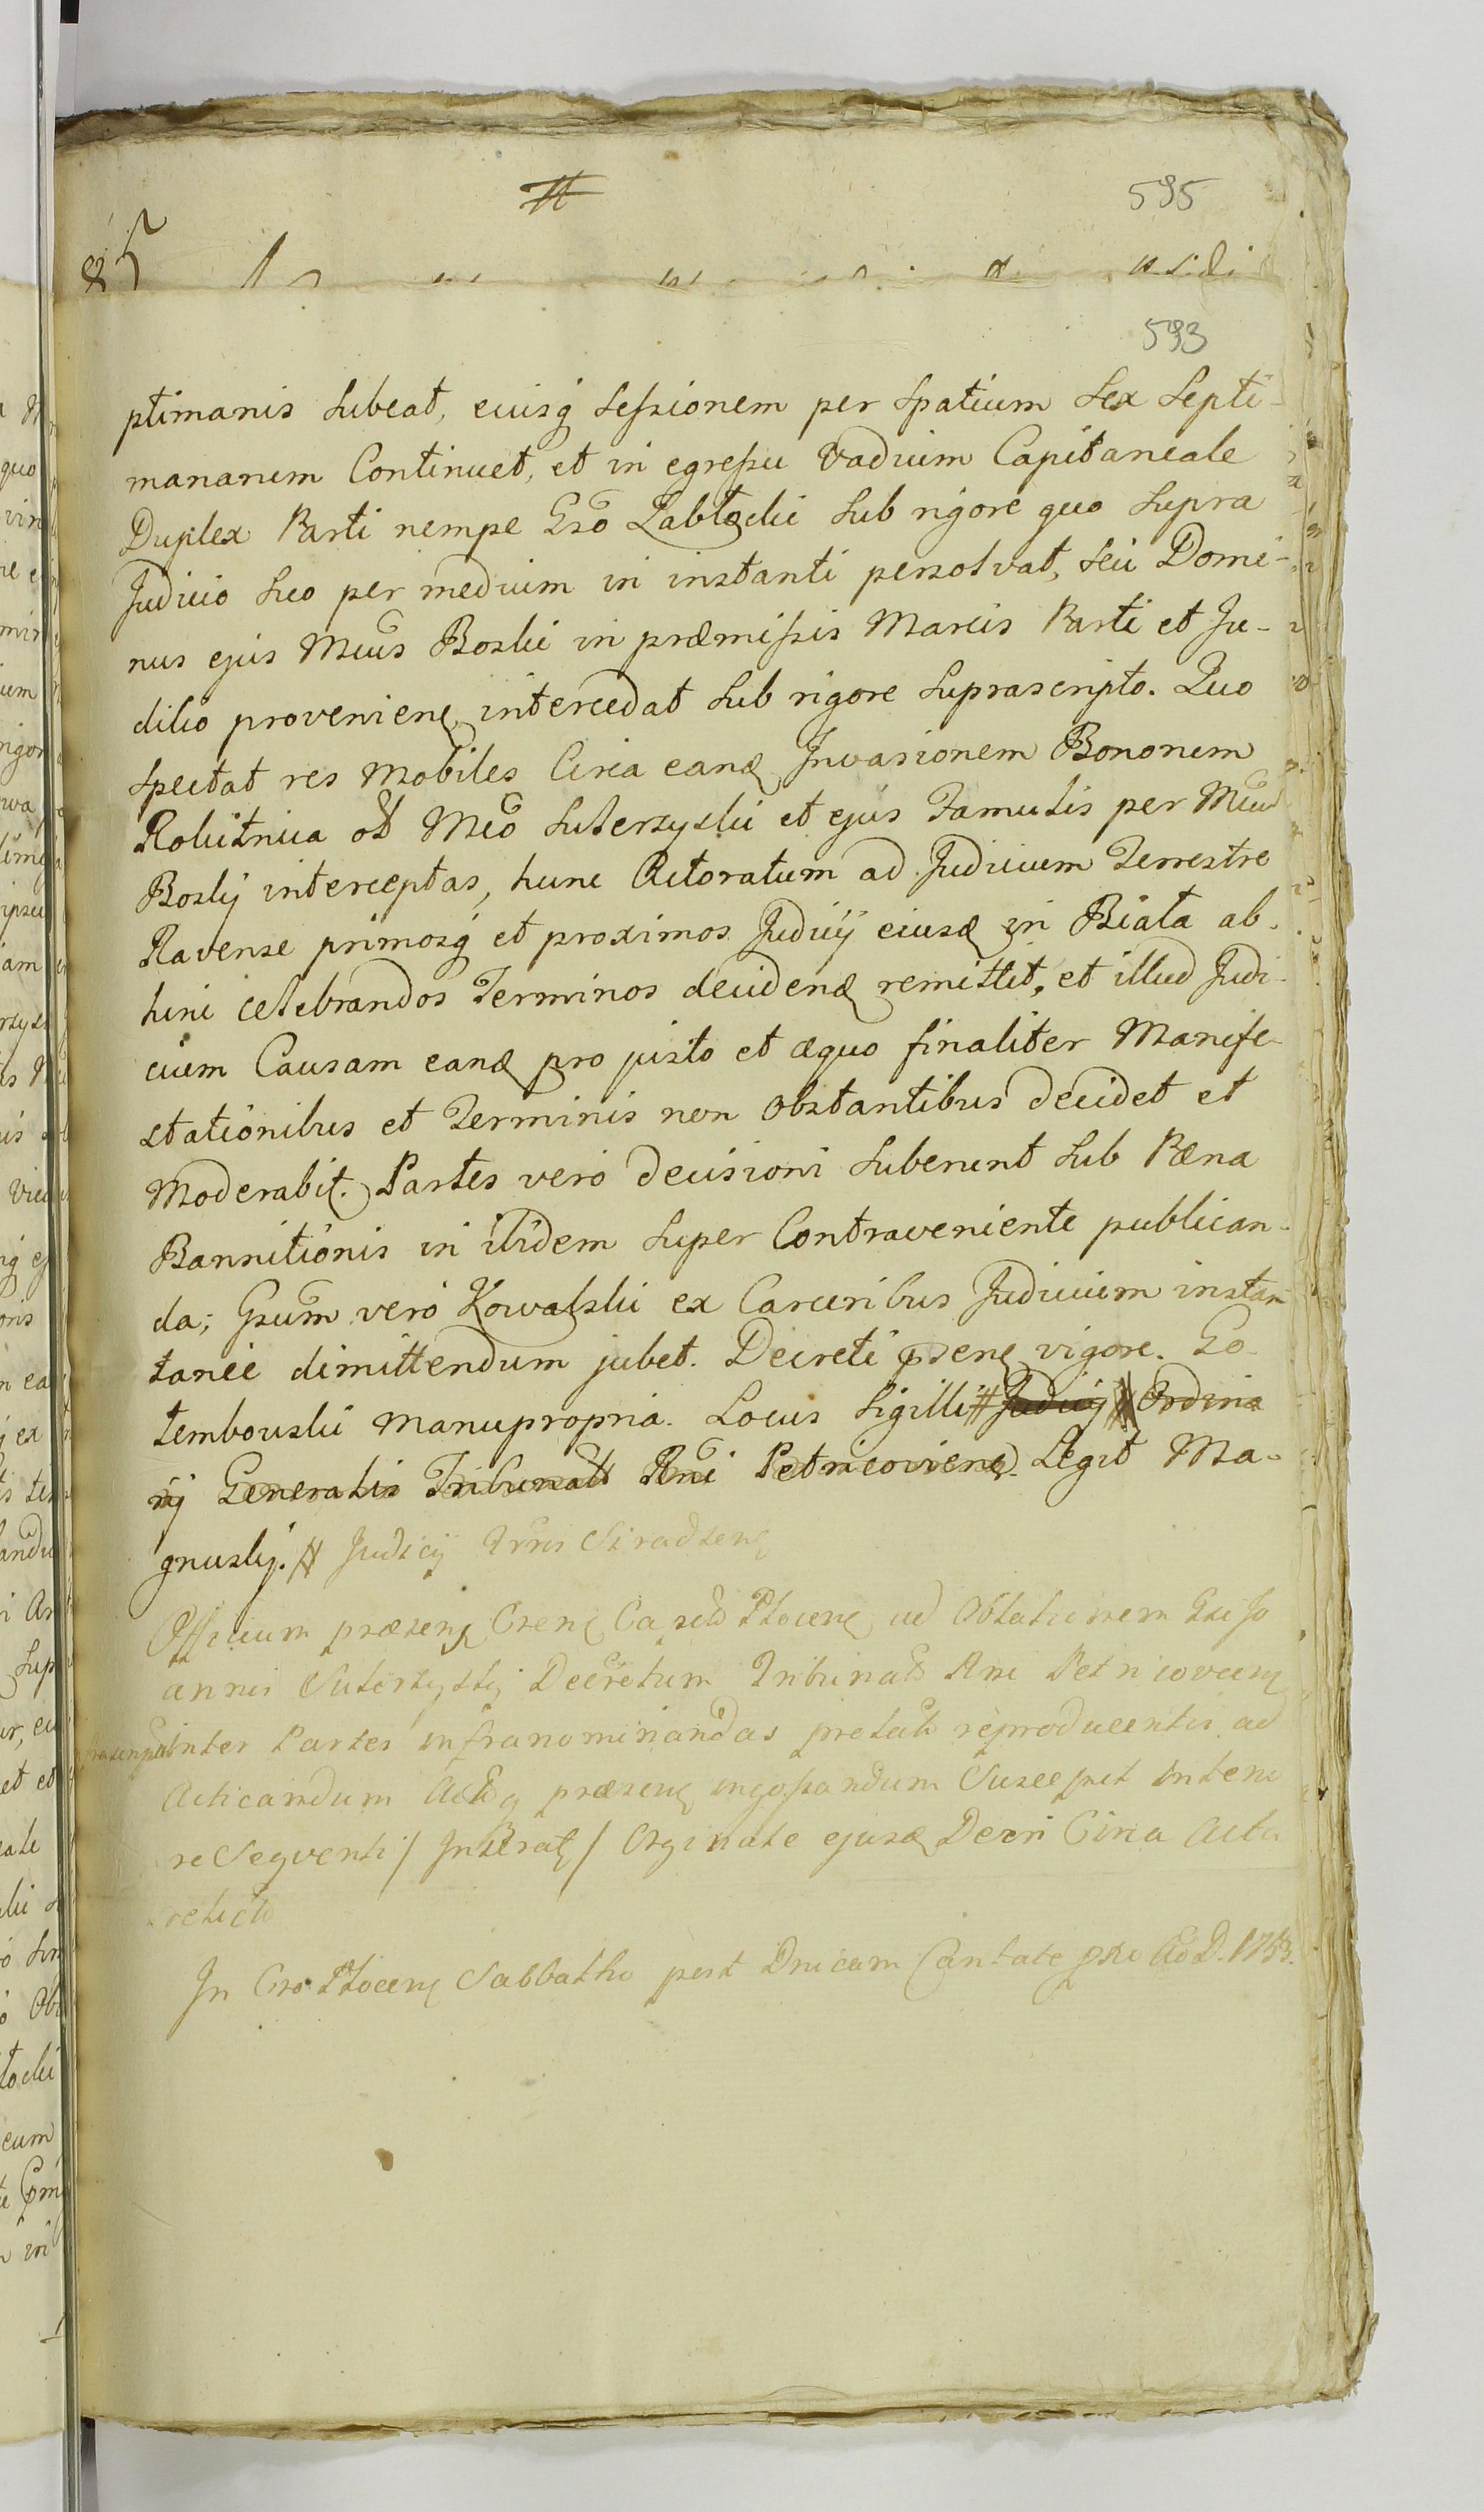 595
593
ptimanis subeat, eiusq sessionem per spatium sex septi-
manarum Continuet, et in egressu Vadium Capitaneale
Duplex Parti nempe Gso Zabłocki sub rigore quo supra
Judicio suo per medium in instanti persolvat, seu Domi-
nus ejus Mcus Boski in præmissis Marcis Parti et Ju-
dicio provenien intercedat sub rigore suprascripto. Quo
spectat res Mobiles Circa eand Invasionem Bonorum
Rokitnica ob Mco Suterzyski et ejus Famulis per Mcum
Boskij interceptas, hunc Actoratum ad Judicium Terrestre
Ravense primosq et proximos Judicij eiusd in Biała ab-
hinc celebrandos Terminos decidend remittit, et illud Judi-
cium Causam eand pro justo et æquo finaliter Manife-
stationibus et Terminis non obstantibus decidet et
Moderabit. Partes vero decisioni subenunt sub Pæna
Bannitionis in ibidem super Contraveniente publican-
da; Gsum vero Kowalski ex Carceribus Judicium instan
tanee dimittendum jubet. Decreti psens vigore. Go
tembouski manupropria. Locus Sigilli # Judicij # Ordina
rij Generalis Tribunal Rni Petricovien. Legit Ma-
gnuskij. # Judicij Trris Siradzen
Officium præsens Crens Ca Plocens ad Oblationem Gsi Jo
annis Suterzyskij Decretum Tribunal Rni Petricoviens
inter Partes infranominandas prolat reproducentis ad
Acticandum Actq præsens ingossandum Suscepit in teno
re Sequenti / Inserat / Orginale ejusd Decri Circa Acta
relicto
In Cro Plocens Sabbatho post Dnicam Cantate psu AoD. 1753.